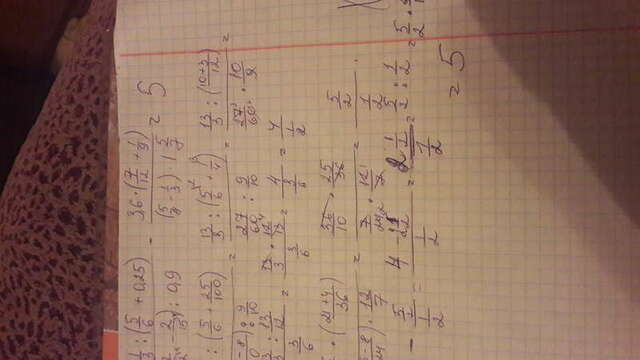 1/3 : (5/6 + 0,25) / (... - 2/15) : 0,9 - 3,6 · (7/12 + 1/9) / (5/8 - 1/3) · 1 5/7 = 5
: (5/6 + 25/100) / : 9/10 = 13/3 : (5/6 + 1/4) / 27/60 : 9/10 = 13/3 : (10+3/12) / 27/60 · 10/9 =
13/3 : 13/12 / 3/6 = 13/3 · 12/13 / 3/6 = 4 / 3/6 = 4 / 1/2
· (21+4/36) / (-8/24) · 12/7 = 36/10 · 25/36 / 7/24 · 12/7 = 5/2 / 1/2 .
- 5/2 / 1/2 = / 1/2 = / 1/2 = 5/2 : 1/2 = 5/2 ·
= 5